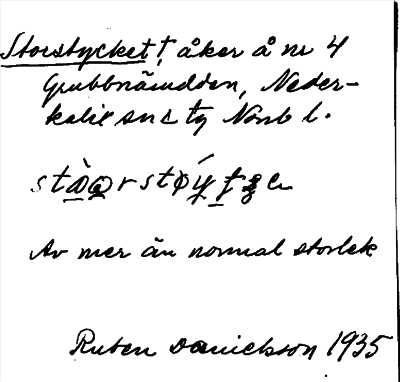 Storstycket, åker å nr 4
Grubbnäsudden, Neder-
kalix sn Norrb l.
Av mer än normal storlek
Ruben Danielsson 1935